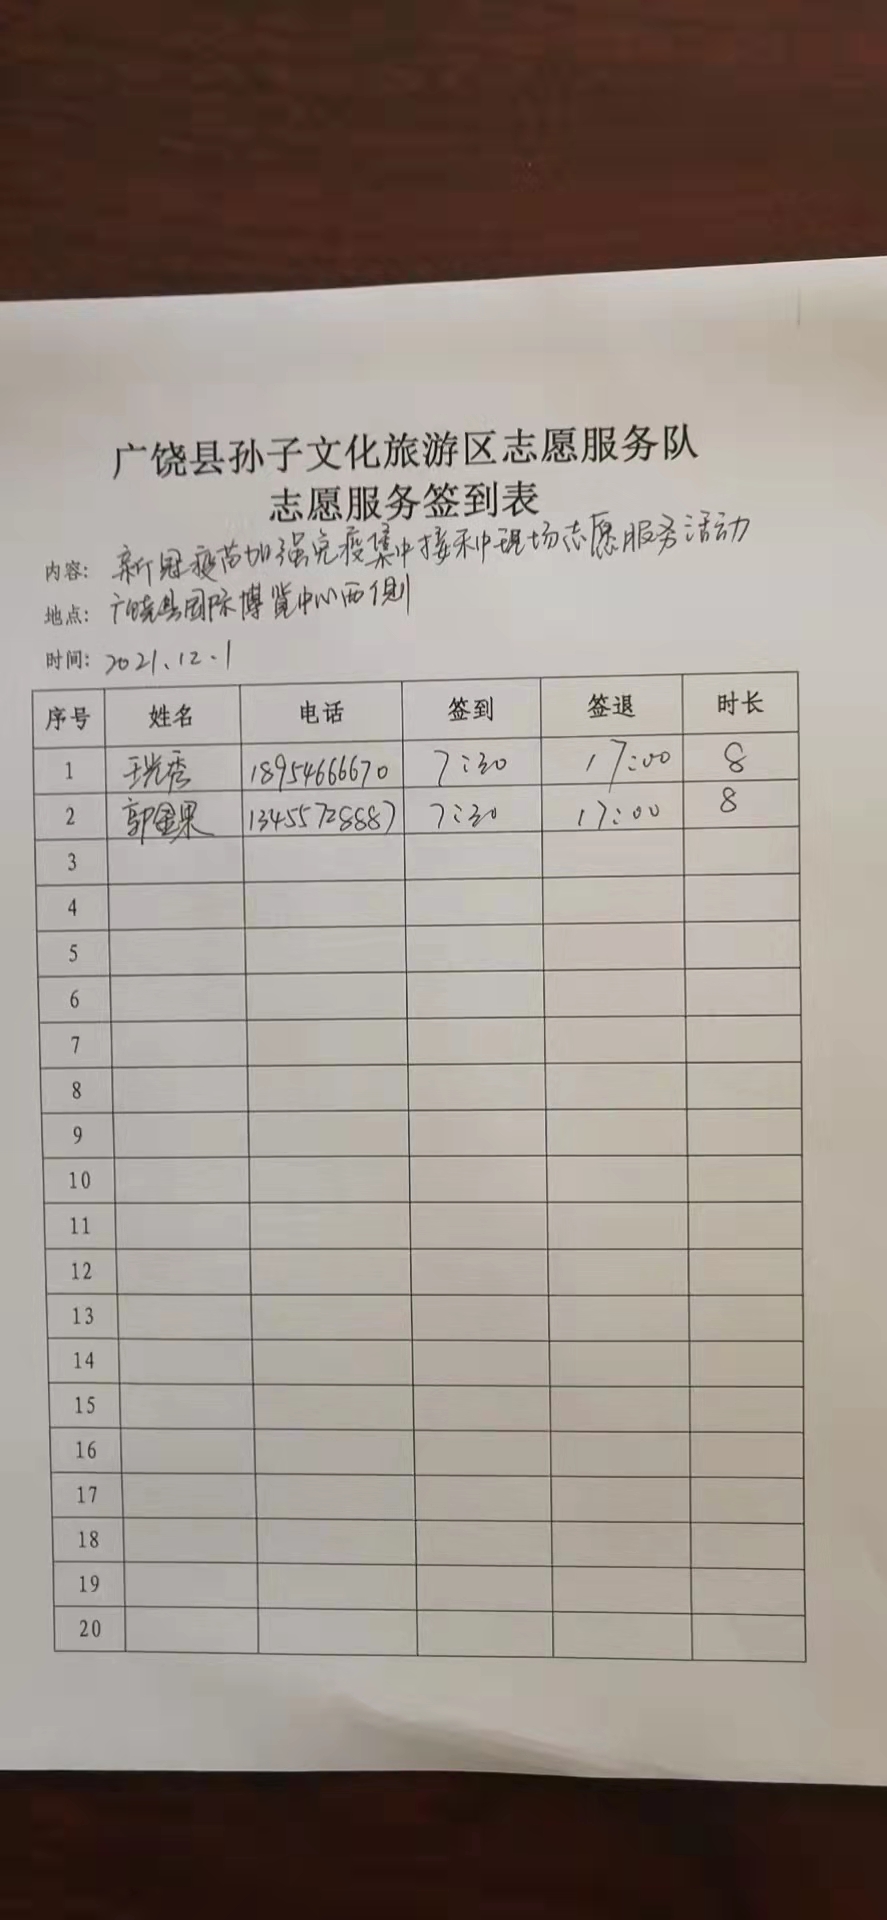 广饶县孙子文化旅游区志愿服务队
志愿服务签到表
内容: 新冠疫苗加强免疫集中接种现场志愿服务活动
地点: 广饶县国际博览中心西侧
时间: 2021.12.1
序号 姓名 电话 签到 签退 时长
1 王光秀 18954666670 7:30 17:00 8
2 郭金果 13455728887 7:30 17:00 8
3
4
5
6
7
8
9
10
11
12
13
14
15
16
17
18
19
20